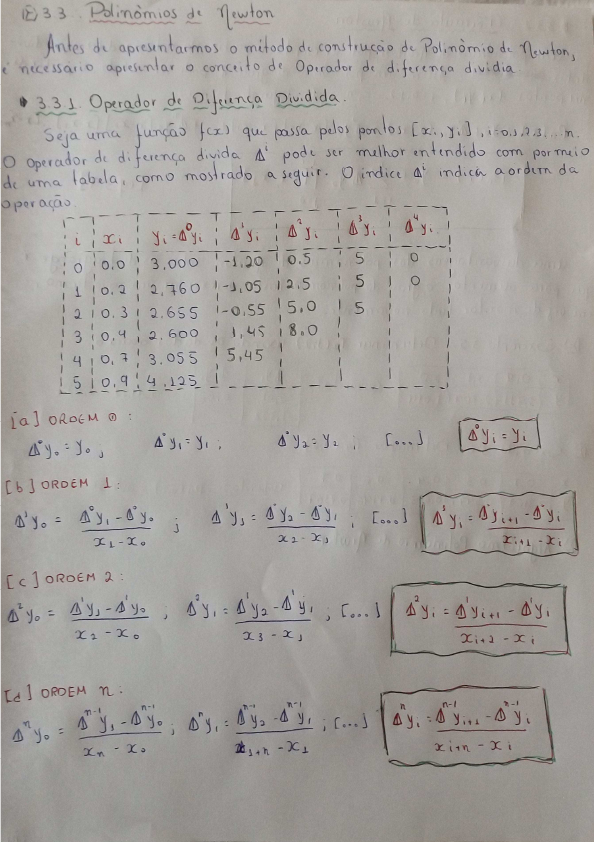 ② 3.3. Polinômios de Newton
Antes de apresentarmos o método de construção de Polinômio de Newton,
é necessário apresentar o conceito de Operador de diferença dividia.
3.3.1. Operador de Diferença Dividida.
Seja uma função f(x) que passa pelos pontos [xᵢ, yᵢ], i=0,1,2,3,...n.
O operador de diferença divida Δⁱ pode ser melhor entendido com por meio
de uma tabela, como mostrado a seguir. O índice Δⁱ indica a ordem da
operação.
i xᵢ yᵢ=Δ⁰yᵢ Δ¹yᵢ Δ²yᵢ Δ³yᵢ Δ⁴yᵢ
0 0.0 3.000 -1.20 0.5 5 0
1 0.2 2.760 -1.05 2.5 5 0
2 0.3 2.655 -0.55 5.0 5
3 0.4 2.600 1.45 8.0
4 0.7 3.055 5.45
5 0.9 4.125
[a] ORDEM 0:
Δ⁰y₀ = y₀; Δ⁰y₁ = y₁; Δ⁰y₂ = y₂; [...] Δ⁰yᵢ = yᵢ
[b] ORDEM 1:
Δ¹y₀ = (Δ⁰y₁ - Δ⁰y₀)/(x₁ - x₀); Δ¹y₁ = (Δ⁰y₂ - Δ⁰y₁)/(x₂ - x₁); [...] Δ¹yᵢ = (Δ⁰yᵢ₊₁ - Δ⁰yᵢ)/(xᵢ₊₁ - xᵢ)
[c] ORDEM 2:
Δ²y₀ = (Δ¹y₁ - Δ¹y₀)/(x₂ - x₀); Δ²y₁ = (Δ¹y₂ - Δ¹y₁)/(x₃ - x₁); [...] Δ²yᵢ = (Δ¹yᵢ₊₁ - Δ¹yᵢ)/(xᵢ₊₂ - xᵢ)
[d] ORDEM n:
Δⁿy₀ = (Δⁿ⁻¹y₁ - Δⁿ⁻¹y₀)/(xₙ - x₀); Δⁿy₁ = (Δⁿ⁻¹y₂ - Δⁿ⁻¹y₁)/(x₁₊ₙ - x₁); [...] Δⁿyᵢ = (Δⁿ⁻¹yᵢ₊₁ - Δⁿ⁻¹yᵢ)/(xᵢ₊ₙ - xᵢ)